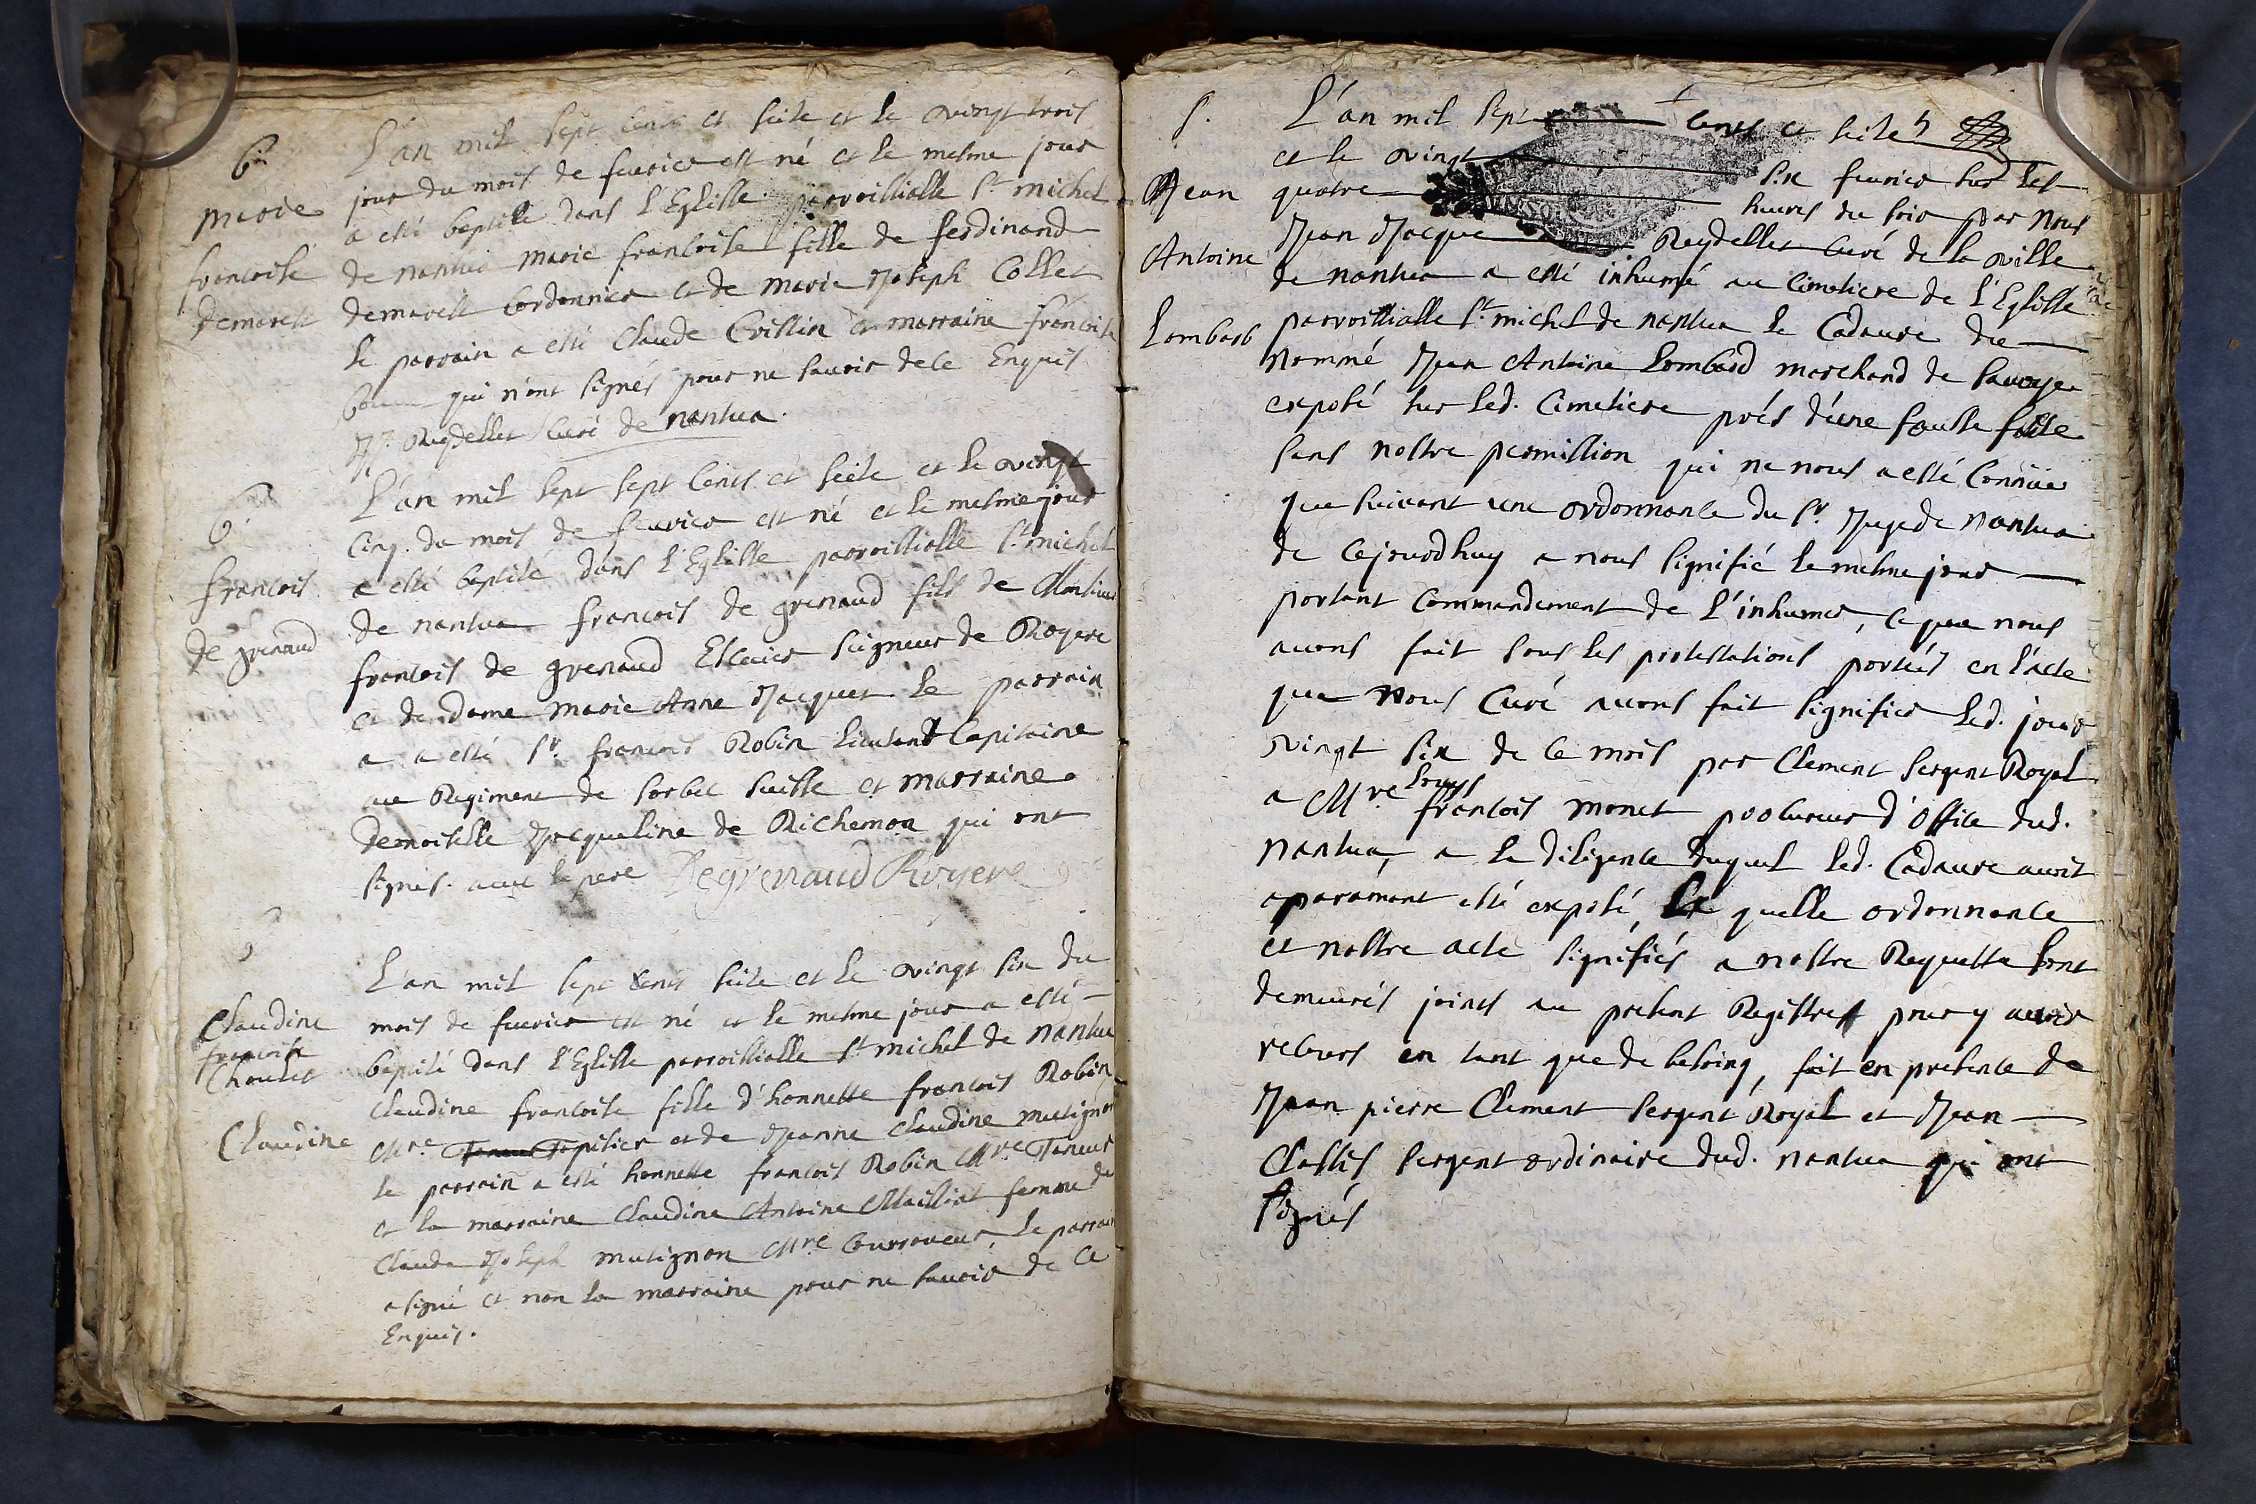 L'an mil sept cents et seize et le vingt trois
jour du mois de feurier est né et le mesme jour
a esté baptisée dans l'Eglisse parroissialle St michel
de nantua marie francoise fille de ferdinand
demarest Cordonnier et de marie Joseph Collet
le parrain a esté Claude Crissin et marraine francoise
qui n'ont signés pour ne sauoir de ce Enquis
JJ. Reydellet Curé de nantua.
Bn
marie
francoise
demarest
L'an mil sept sept Cents et seize et le vingt
Cinq. du mois de feurier est né et le mesme jour
a esté baptisé dans l'Eglisse parroissialle St michel
de nantua francois de grenaud fils de
francois de grenaud Escuier seigneur de Rogere
et de dame marie Anne Jacquet le parrain
a a esté Sr. francois Robin Lieutenant Capitaine
au Regiment de sorbec suisse et marraine
demoiselle Jacqueline de Richemon qui ont
signés. auec le pere Degrenaud Royere
B.
francois
de grenaud
L'an mil sept Cents seize et le vingt six du
mois de feurier est né et le mesme jour a esté
baptisé dans l'Eglisse parroissialle St michel de nantua
Claudine francoise fille d'honneste francois Robin
Mre. Tapissier et de Jeanne Claudine mutignon
le parrain a esté honneste francois Robin Mre Taneur
et la marraine Claudine Antoine Mailliat femme de
Claude Joseph mutignon Mre Courroyeur, le parrain
a signé et non la marraine pour ne sauoir de Ce
Enquis.
Claudine
francoise
Choulet
Claudine
S.
Jean
Antoine
Lombard
L'an mil sept cents et seize
et le vingt six feurier sur les
quatre heures du soir par Nous
Jean Jacque Reydellet Curé de la ville
de nantua a esté inhumé au Cimetiere de l'Eglisse
parroissialle St michel de nantua le Cadaure du
nommé Jean Antoine Lombard marchand de sauoye
exposé sur led. Cimetiere prés d'une fousse faitte
sans nostre permission qui ne nous a esté Connüe
que suiuant une ordonnance du Sr. Juge de Nantua
de Cejourdhuy a nous signifié le mesme jour
portant Commandement de l'inhumer, ce que nous
auons fait sous les protestations portées en l'acte
que Nous Curé auons fait signifier led. jour
vingt six de ce mois par Clement sergent Royal
a Mre Louys francois monet procureur d'office dud.
Nantua, a la diligence duquel led. Cadaure auoit
aparament esté exposé, La quelle ordonnance
et nostre acte signifiés a nostre Requette sont
demeurés joints au present Registre pour y auoir
recours en tant que de besoing, fait en presence de
Jean pierre Clement sergent Royal et Jean
Chastis sergent ordinaire dud. nantua qui ont
signés